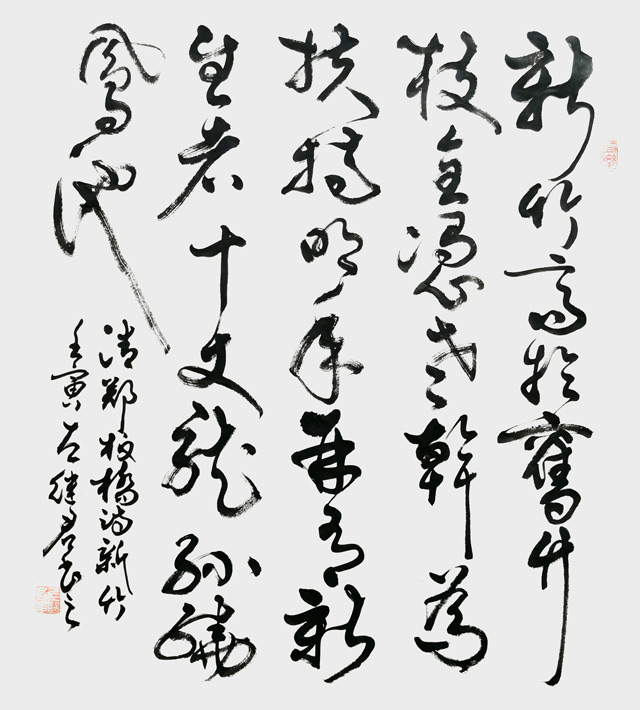 新竹高於舊竹
枝全憑老幹為
扶持明年再有新
生者十丈龍孫繞
鳳池
清鄭板橋詩新竹
壬寅繼君書之